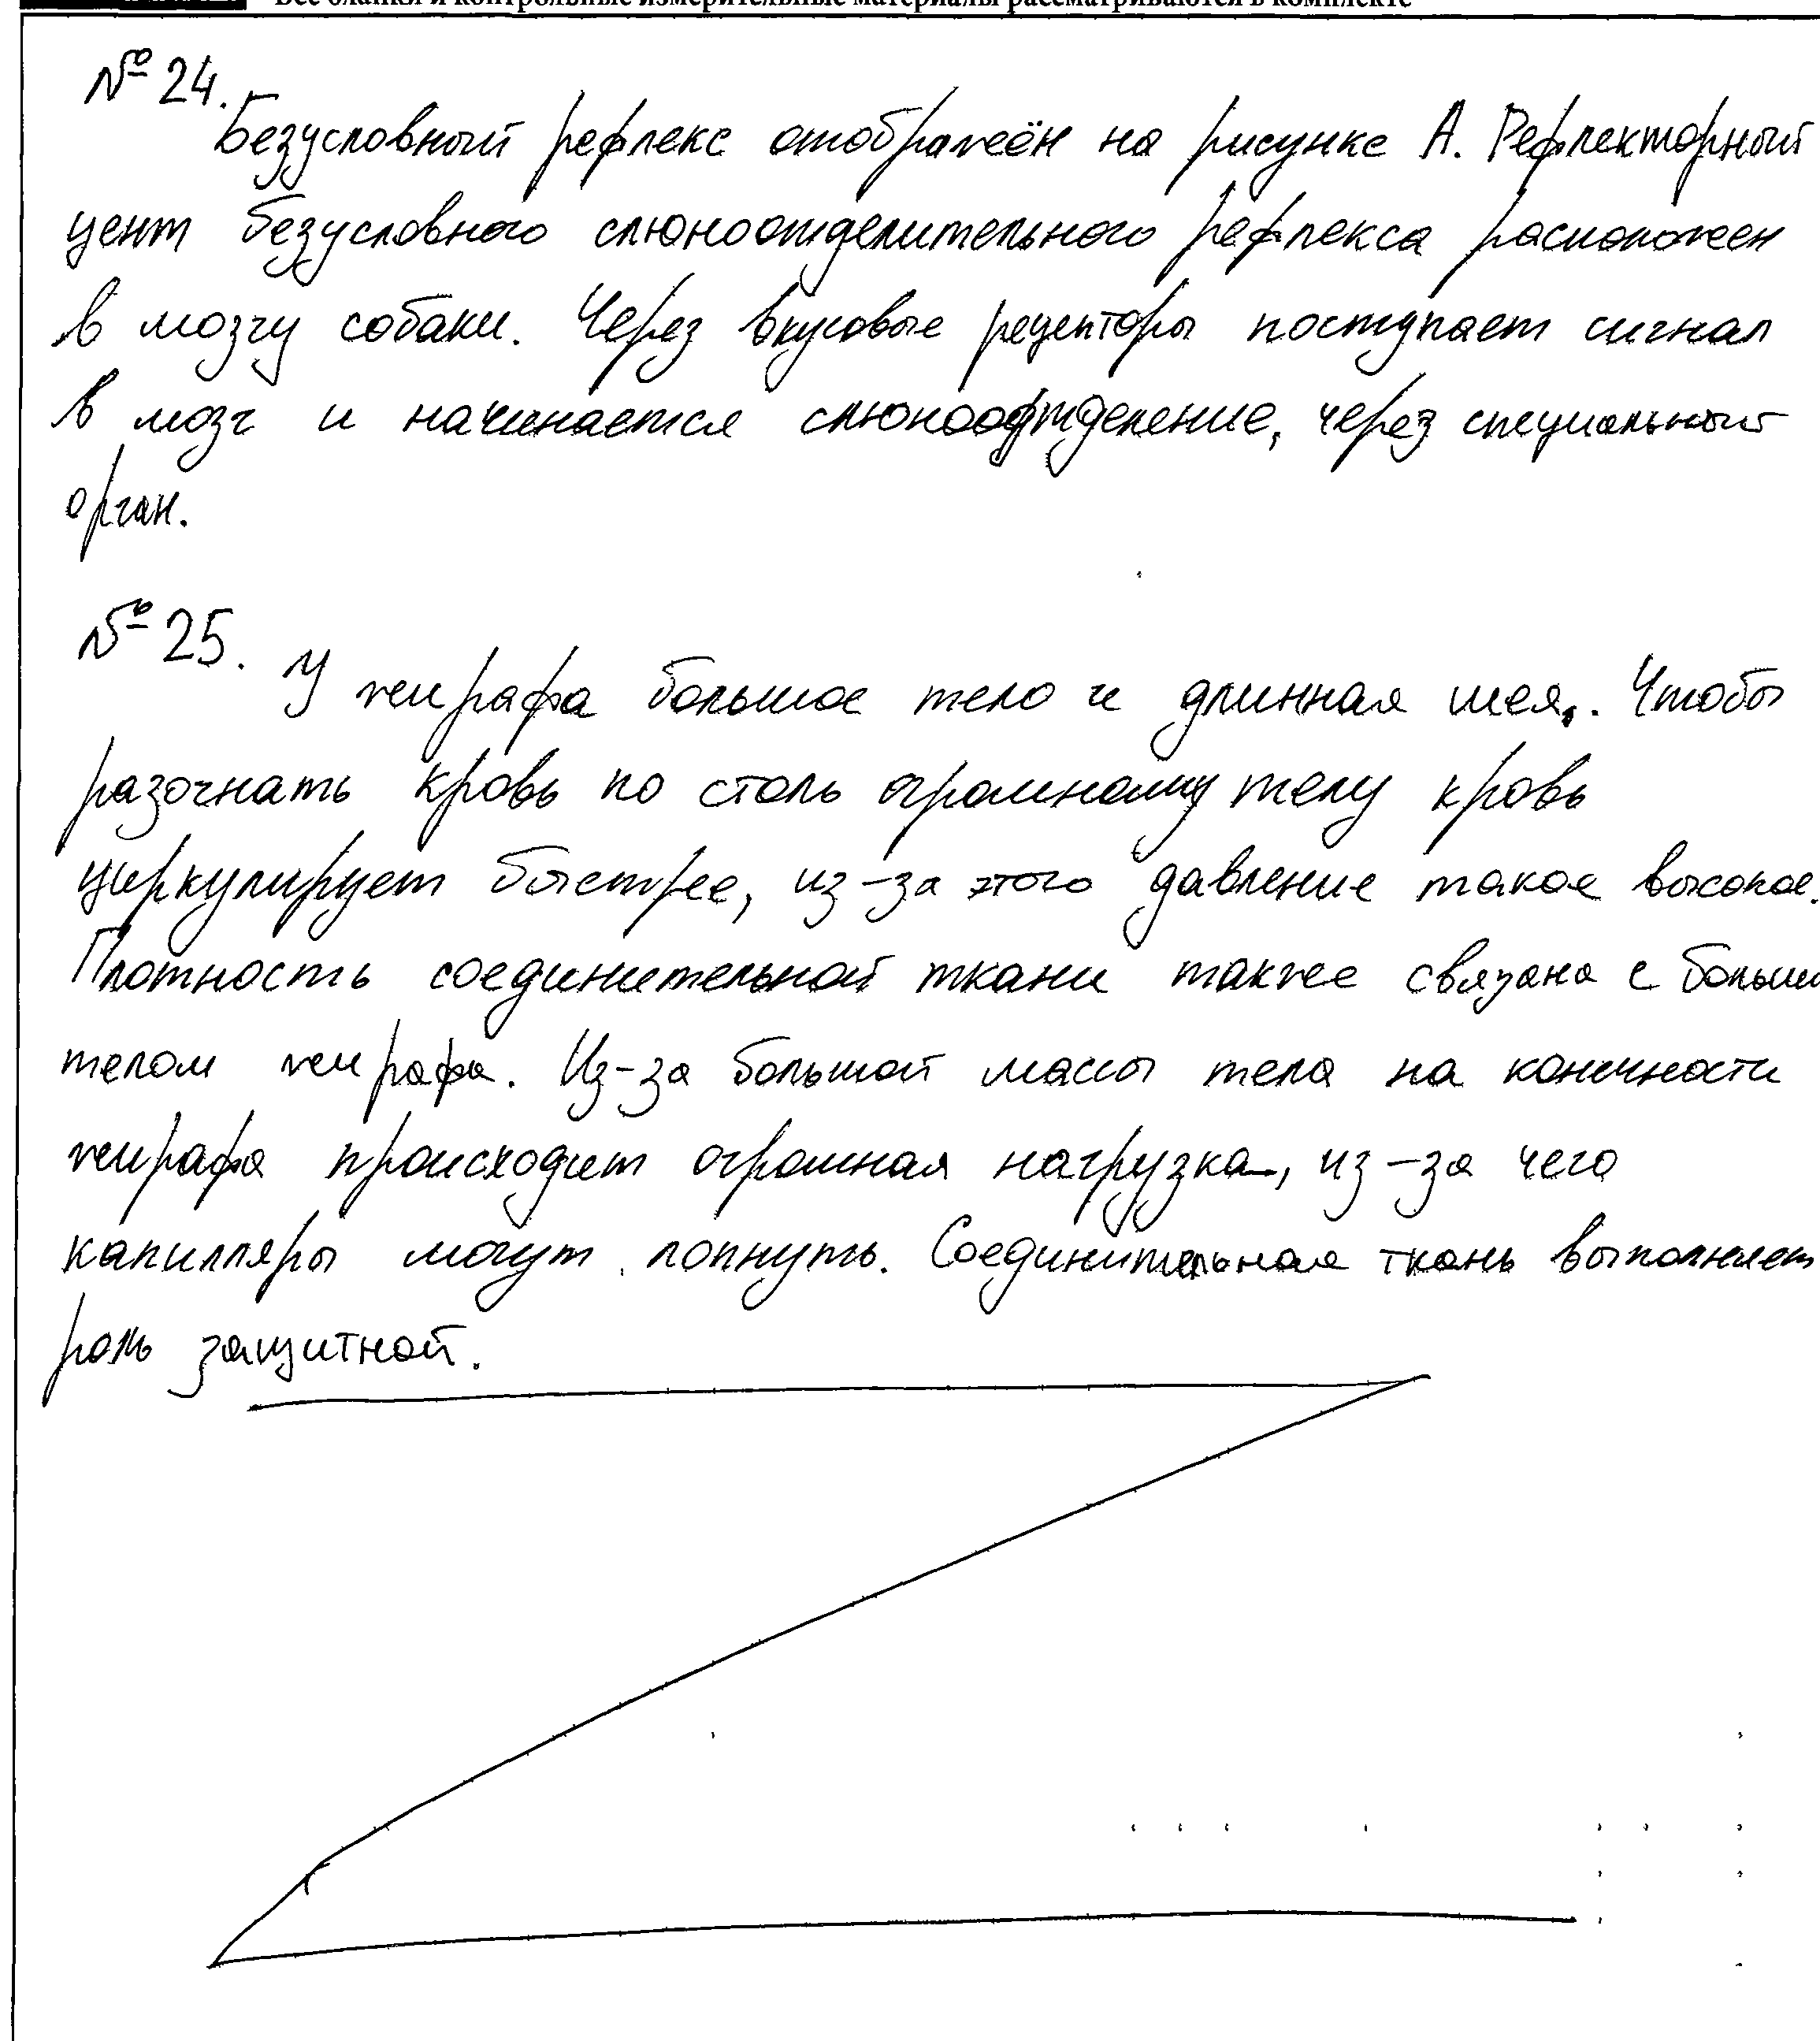 Все бланки и контрольные измерительные материалы рассматриваются в комплекте
№ 24.
Безусловный рефлекс отображён на рисунке А. Рефлекторный
цент безусловного слюноотделительного рефлекса расположен
в мозгу собаки. Через вкусовые рецепторы поступает сигнал
в мозг и начинается слюноотделение, через специальный
орган.
№ 25.
У жирафа большое тело и длинная шея. Чтобы
разогнать кровь по столь огромному телу кровь
циркулирует быстрее, из-за этого давление такое высокое.
Плотность соединительной ткани также связана с больши
телом жирафа. Из-за большой массы тела на конечности
жирафа происходит огромная нагрузка, из-за чего
капилляры могут лопнуть. Соединительная ткань выполняет
роль защитной.